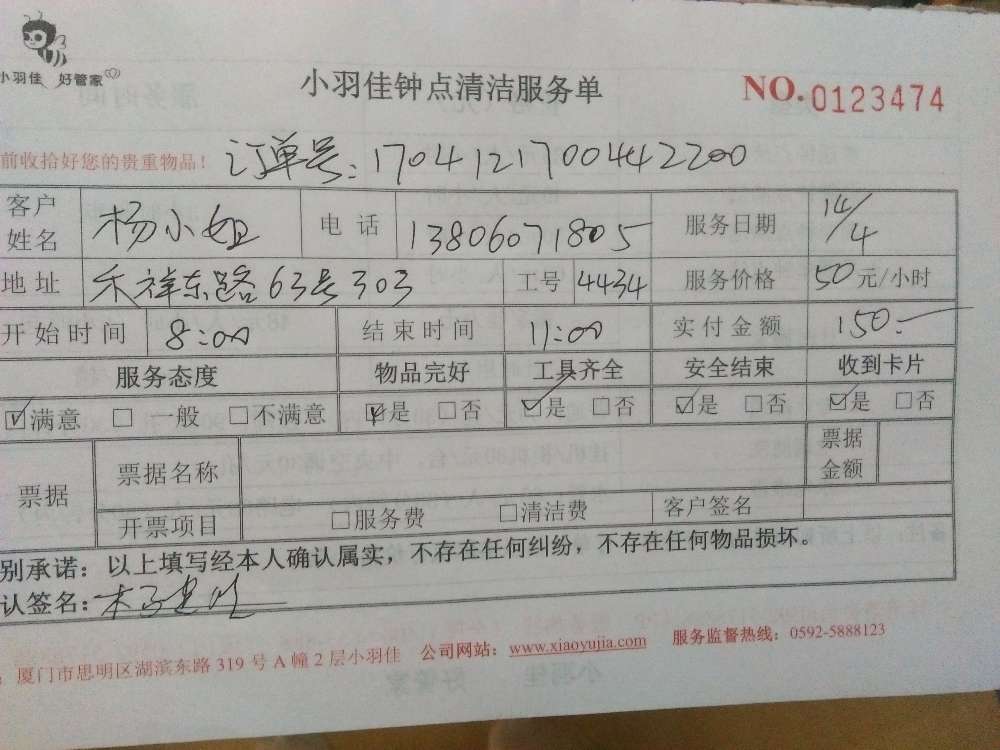 小羽佳 好管家
小羽佳钟点清洁服务单
NO.0123474
前收拾好您的贵重物品!
订单号:1704121700442200
客户姓名 杨小姐 电话 13806071805 服务日期 14/4
地址 禾祥东路63号303 工号 4434 服务价格 50元/小时
开始时间 8:00 结束时间 11:00 实付金额 150.—
服务态度 物品完好 工具齐全 安全结束 收到卡片
☑满意 □一般 □不满意 ☑是 □否 ☑是 □否 ☑是 □否 ☑是 □否
票据 票据名称 票据金额
开票项目 □服务费 □清洁费 客户签名
别承诺:以上填写经本人确认属实,不存在任何纠纷,不存在任何物品损坏。
认签名:
:厦门市思明区湖滨东路319号A幢2层小羽佳 公司网站:www.xiaoyujia.com 服务监督热线:0592-5888123